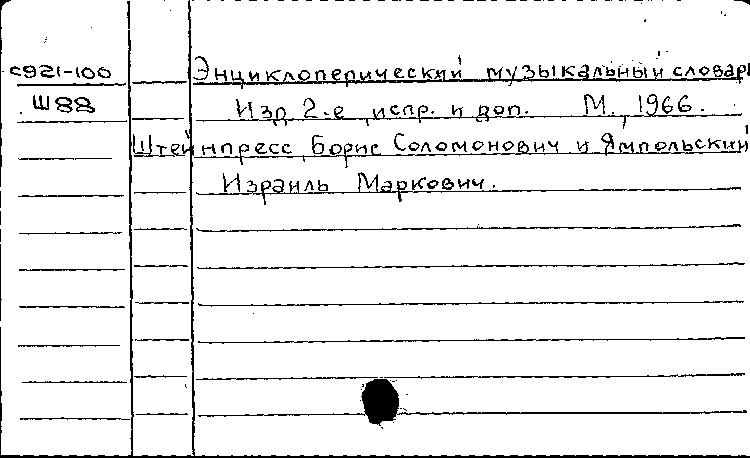 С921-100 Энциклопедический музыкальный словарь
Ш88 Изд 2-е, испр. и доп. М., 1966.
Штейнпресс, Борис Соломонович и Ямпольский
Израиль Маркович.